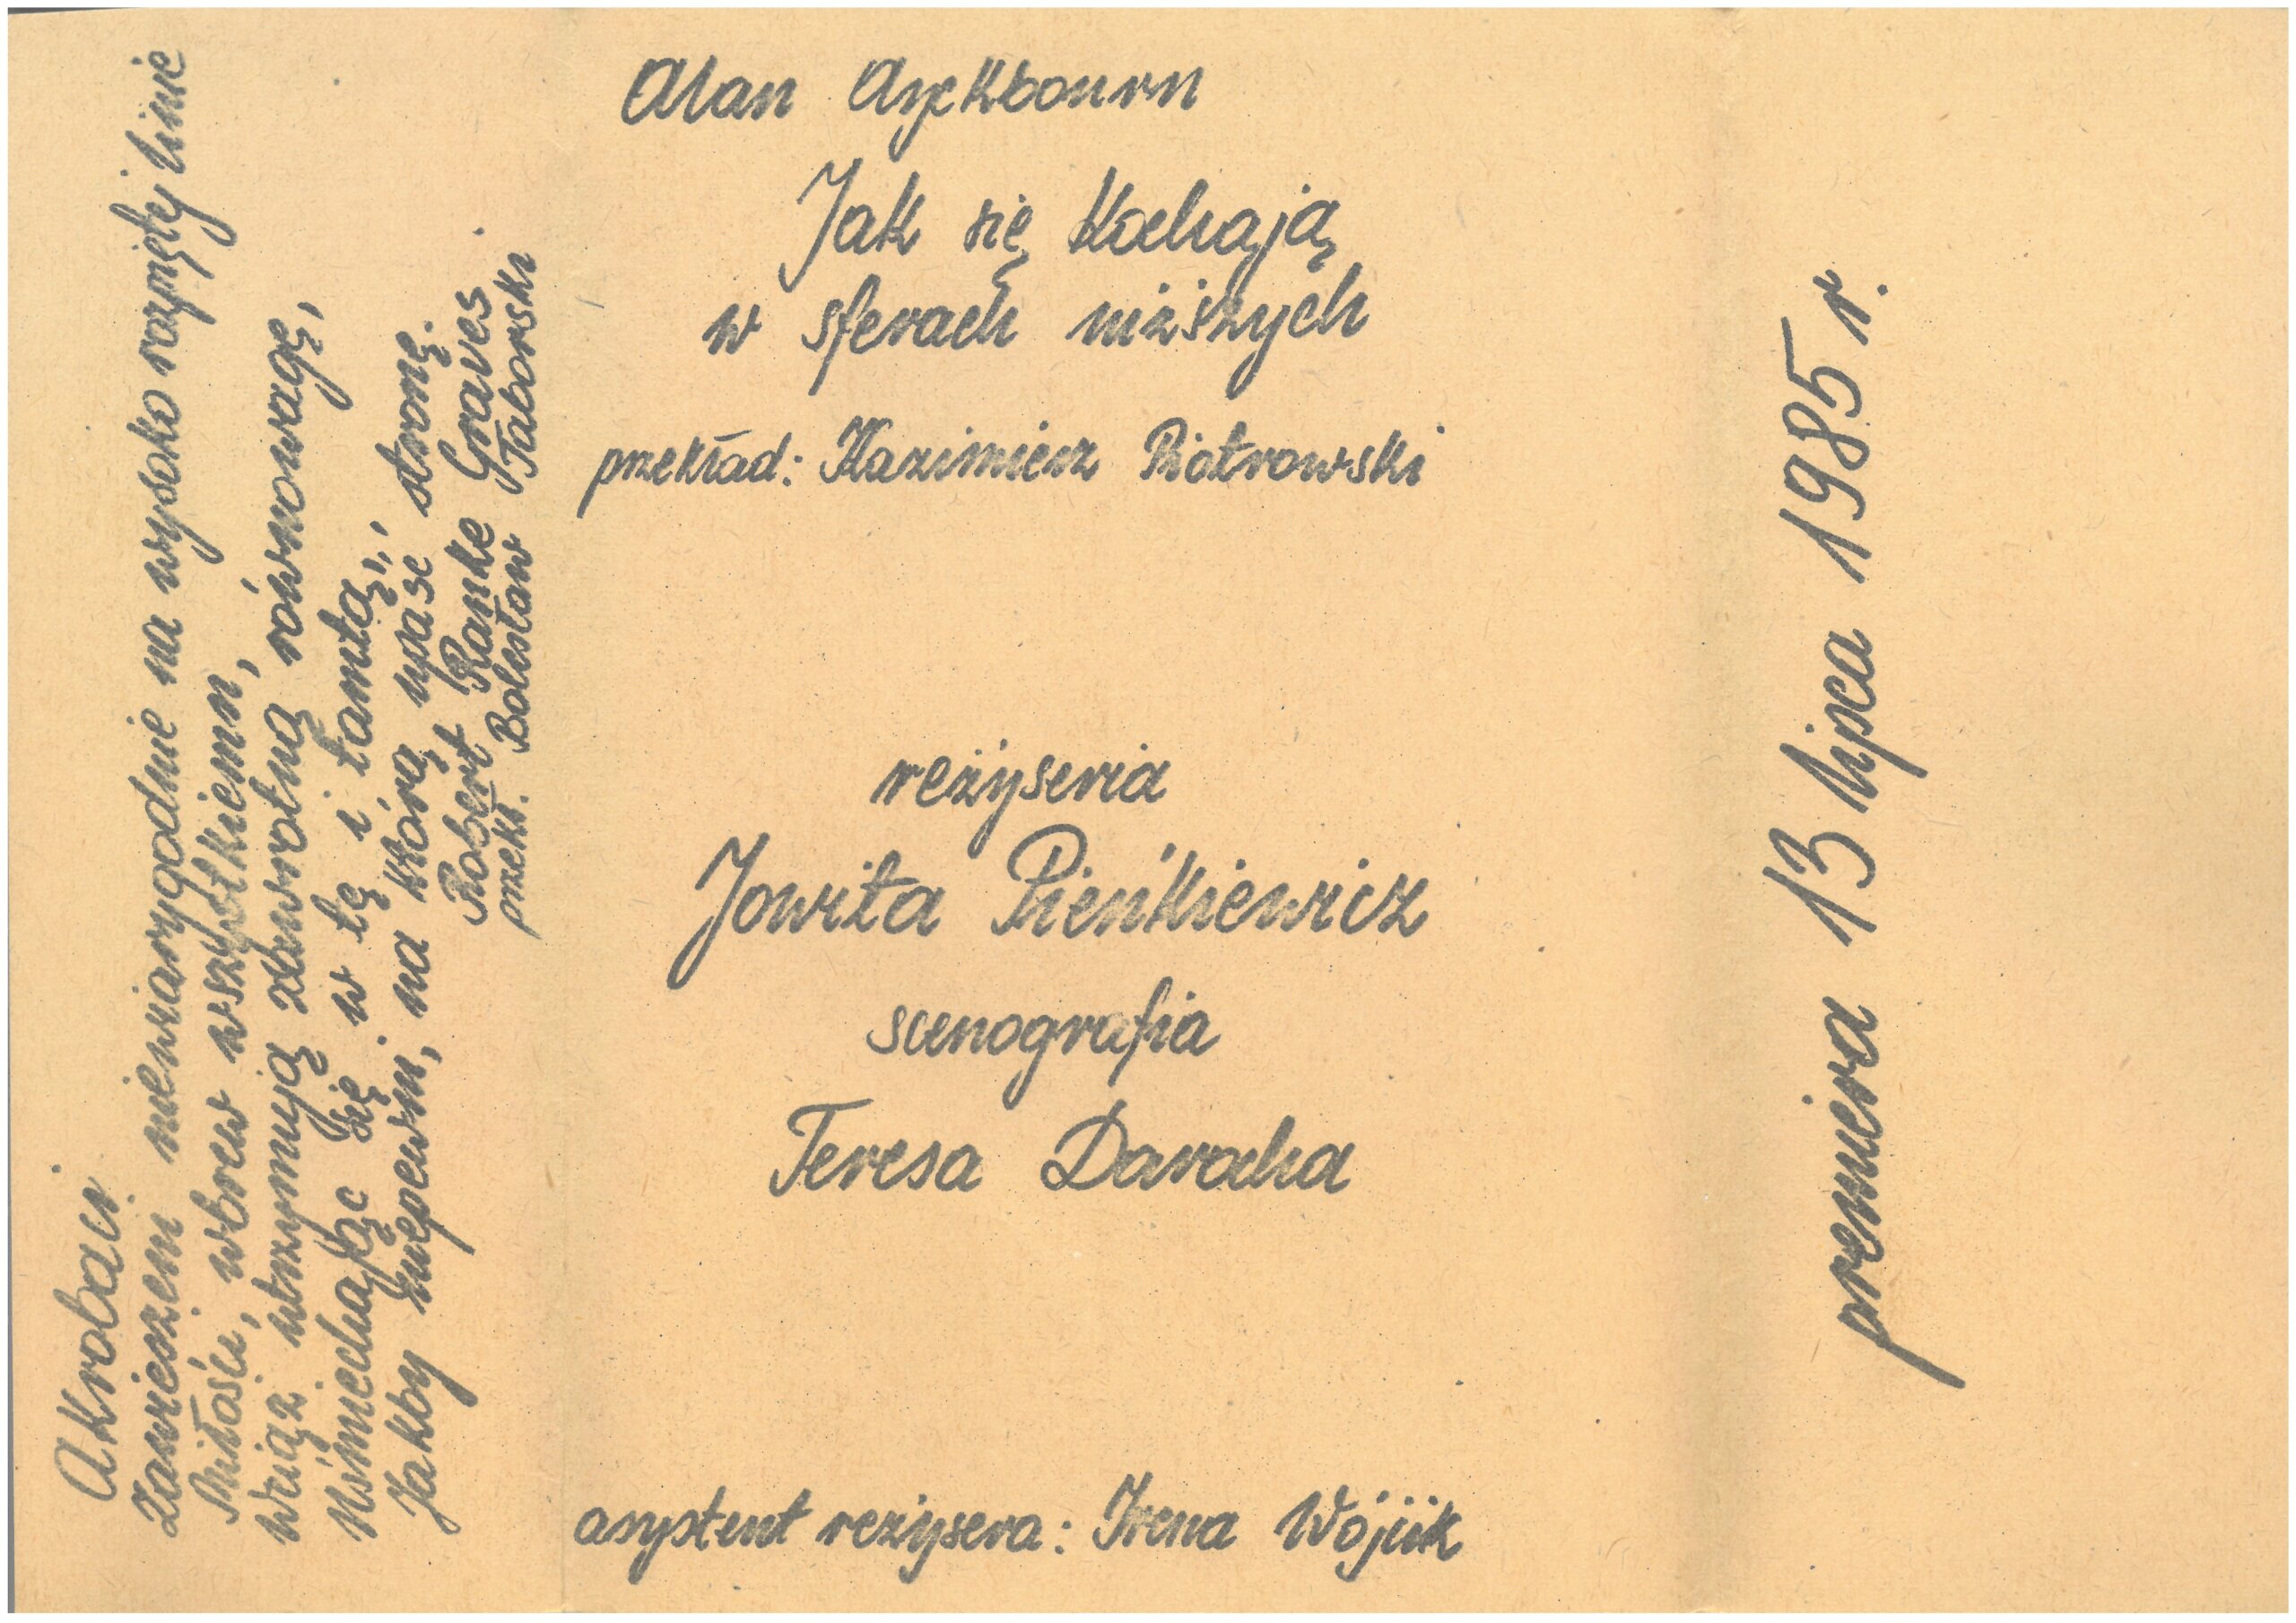 Akrobaci
Zawieszeni niewiarygodnie na wysoko rozpiętej linie
Miłości, wbrew wszystkiemu,
Wciąż utrzymują zawrotną równowagę,
Uśmiechając się w tę i tamtą,
Jakby niepewni, na którą upaść stronę.
Robert Ranke Graves
przekł. Bolesław Taborski
Alan Ayckbourn
Jak się kochają
w sferach niższych
przekład: Kazimierz Piotrowski
reżyseria
Jowita Pieńkiewicz
scenografia
Teresa Darocha
asystent reżysera: Irena Wójcik
premiera 13 lipca 1985 r.